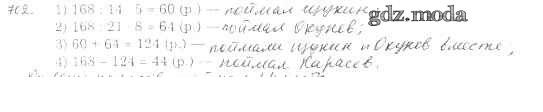 702. 1) 168 : 14 · 5 = 60 (р.) — поймал Щукин
gdz.moda
2) 168 : 21 · 8 = 64 (р.) — поймал Окунев;
3) 60 + 64 = 124 (р.) — поймали Щукин и Окунев вместе;
4) 168 − 124 = 44 (р.) — поймал Карасев.